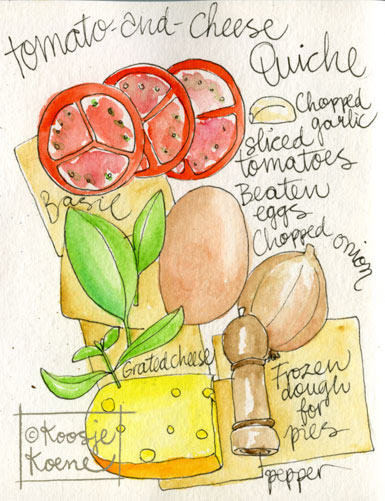 tomato-and-cheese
Quiche
Chopped
garlic
sliced
tomatoes
Beaten
eggs
Chopped onion
Basic
Grated cheese
Frozen
dough
for
pies
pepper
©Koosje
Koene